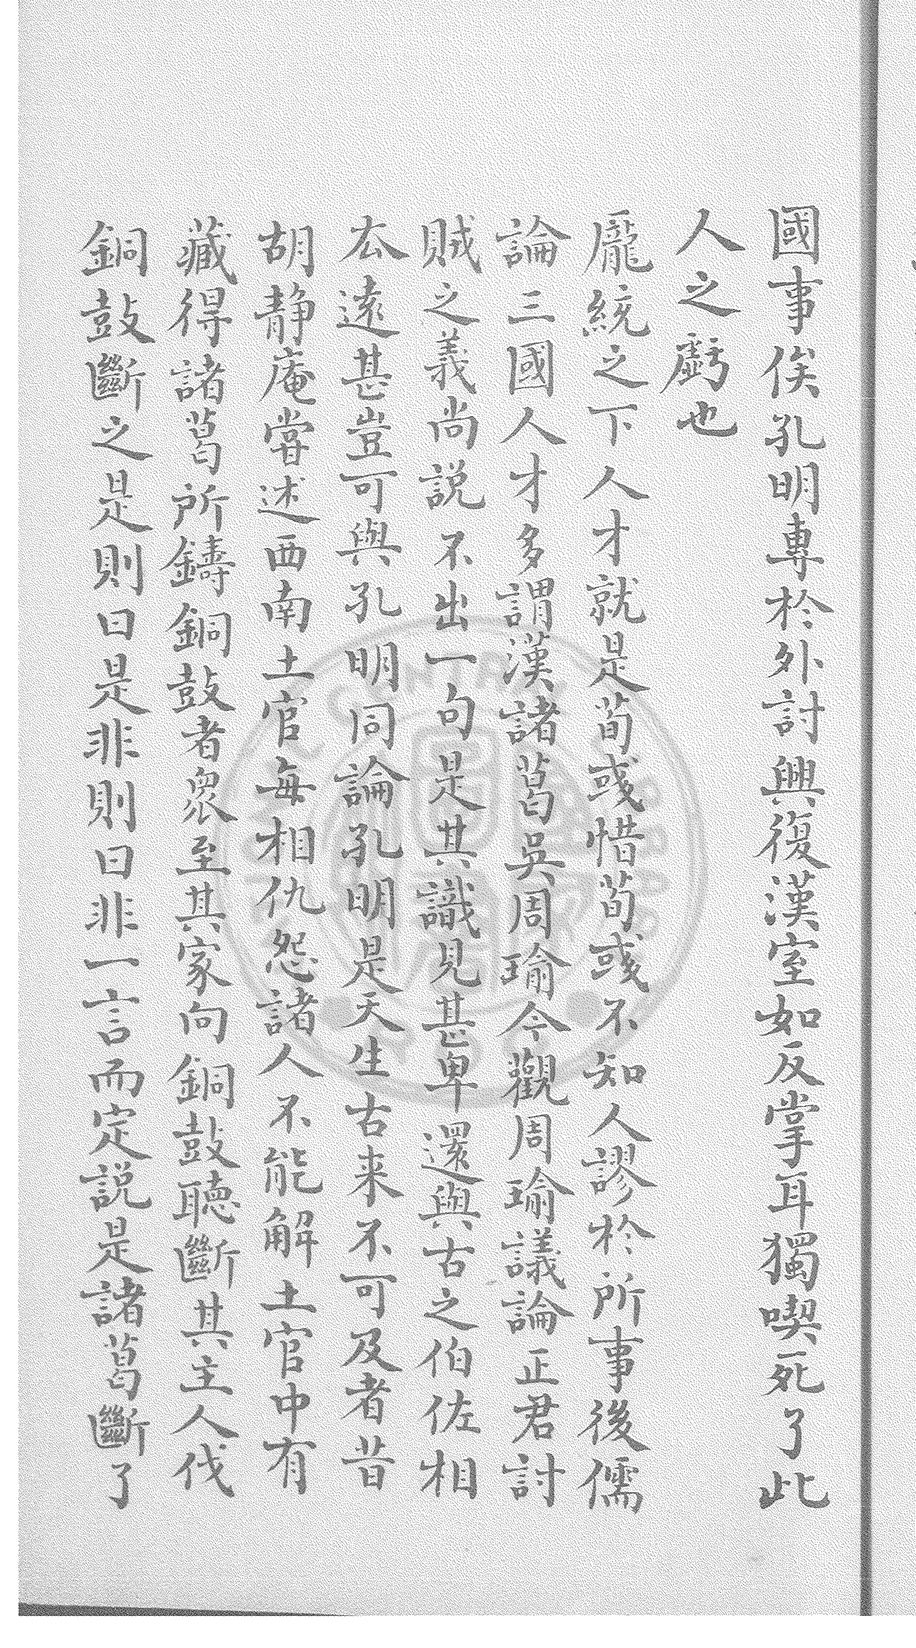 國事俟孔明專於外討興復漢室如反掌耳獨喫死了此
人之虧也
龐統之下人才就是荀彧惜荀彧不知人謬於所事後儒
論三國人才多謂漢諸葛吳周瑜今觀周瑜議論正君討
賊之義尚説不出一句是其識見甚卑還與古之伯佐相
厺遠甚豈可與孔明同論孔明是天生古来不可及者昔
胡静庵嘗述西南土官每相仇怨諸人不能解土官中有
藏得諸葛所鑄銅鼓者衆至其家向銅鼓聽斷其主人伐
銅鼓斷之是則曰是非則曰非一言而定説是諸葛斷了